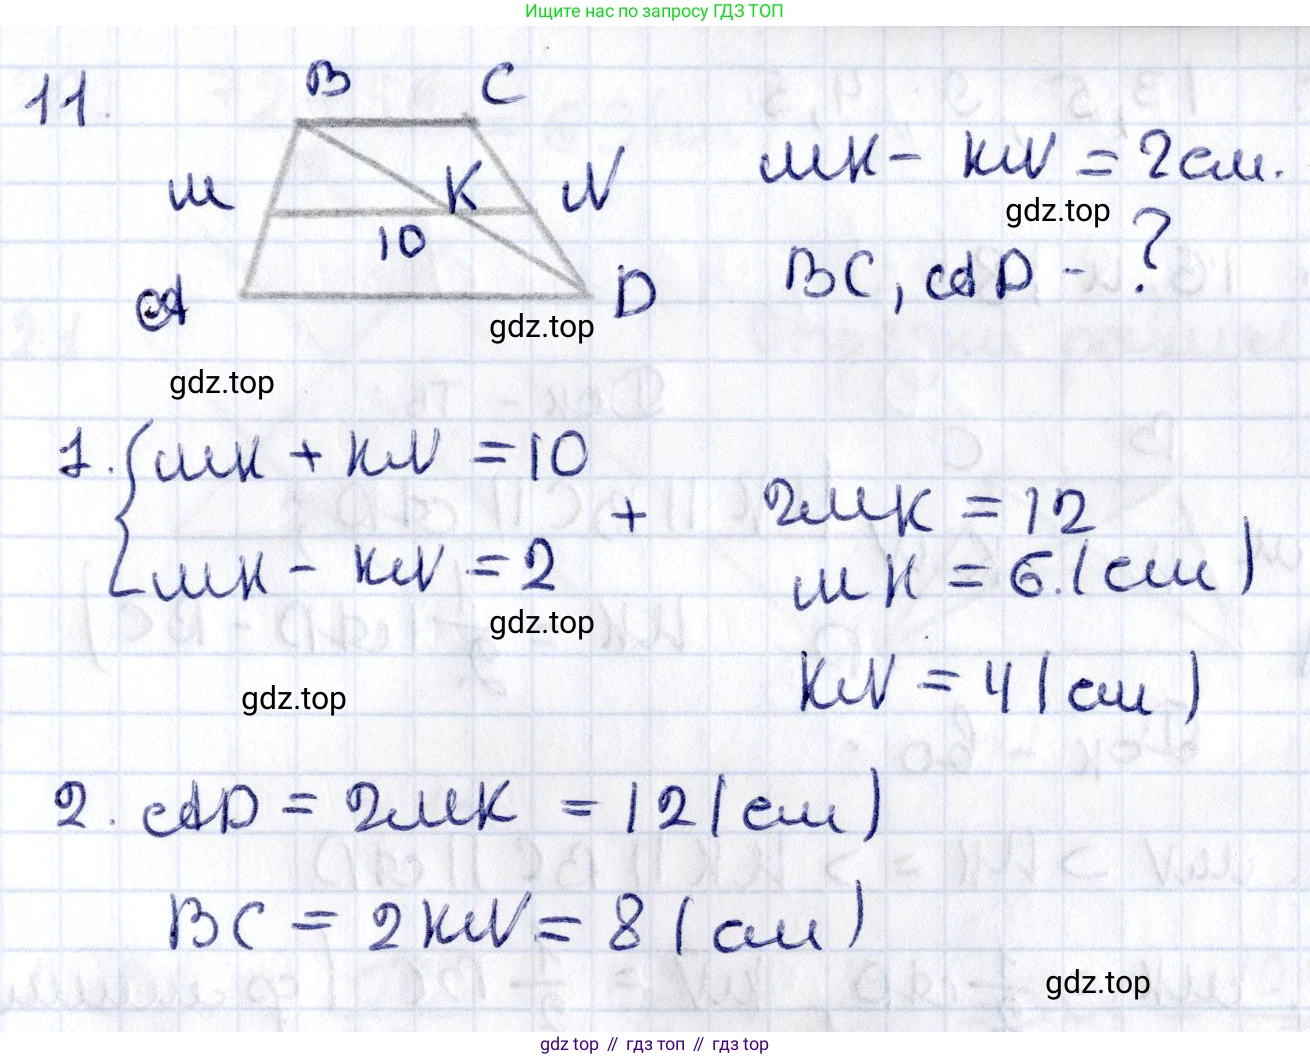 Ищите нас по запросу ГДЗ ТОП
11.
B C
M K N
10
A D
MK - KN = 2 см.
gdz.top
BC, AD - ?
gdz.top
gdz.top
1. { MK + KN = 10
MK - KN = 2
+
2MK = 12
MK = 6 (см)
gdz.top
KN = 4 (см)
gdz.top
2. AD = 2MK = 12 (см)
BC = 2KN = 8 (см)
gdz.top
gdz top // гдз топ // гдз top